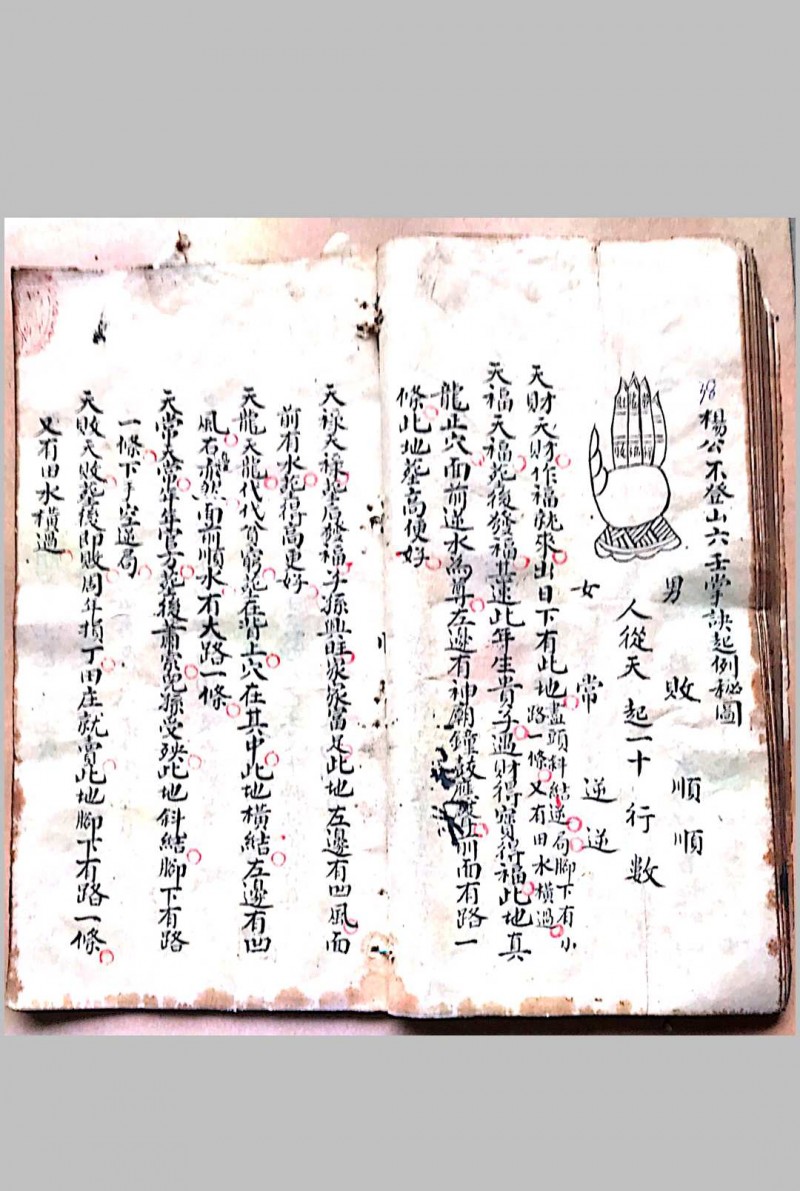 楊公不登山六壬掌訣起例秘圖
男 敗 順順
人從天起一十行數
女 常 逆逆
天財天財作福就來出日下有此地盡頭斜結逆局腳下有小
路一條又有田水橫過
天福天福葬後發福其速此年生貴子過財得寶得福此地真
龍正穴面前逆水為尊左邊有神廟鐘鼓應 面有路一
條此地墓高便好
天祿天祿葬后發福子孫興旺家家富足此地左邊有凹風面
前有水葬得高更好
天龍天龍代代貧窮葬在背上穴在其中此地橫結左邊有凹
風右 面前順水有大路一條
天常天常年年官方葬後 兒孫受殃此地斜結腳下有路
一條下手空逆局
天敗天敗葬後即敗周年損丁田庄就賣此地腳下有路一條
又有田水橫過